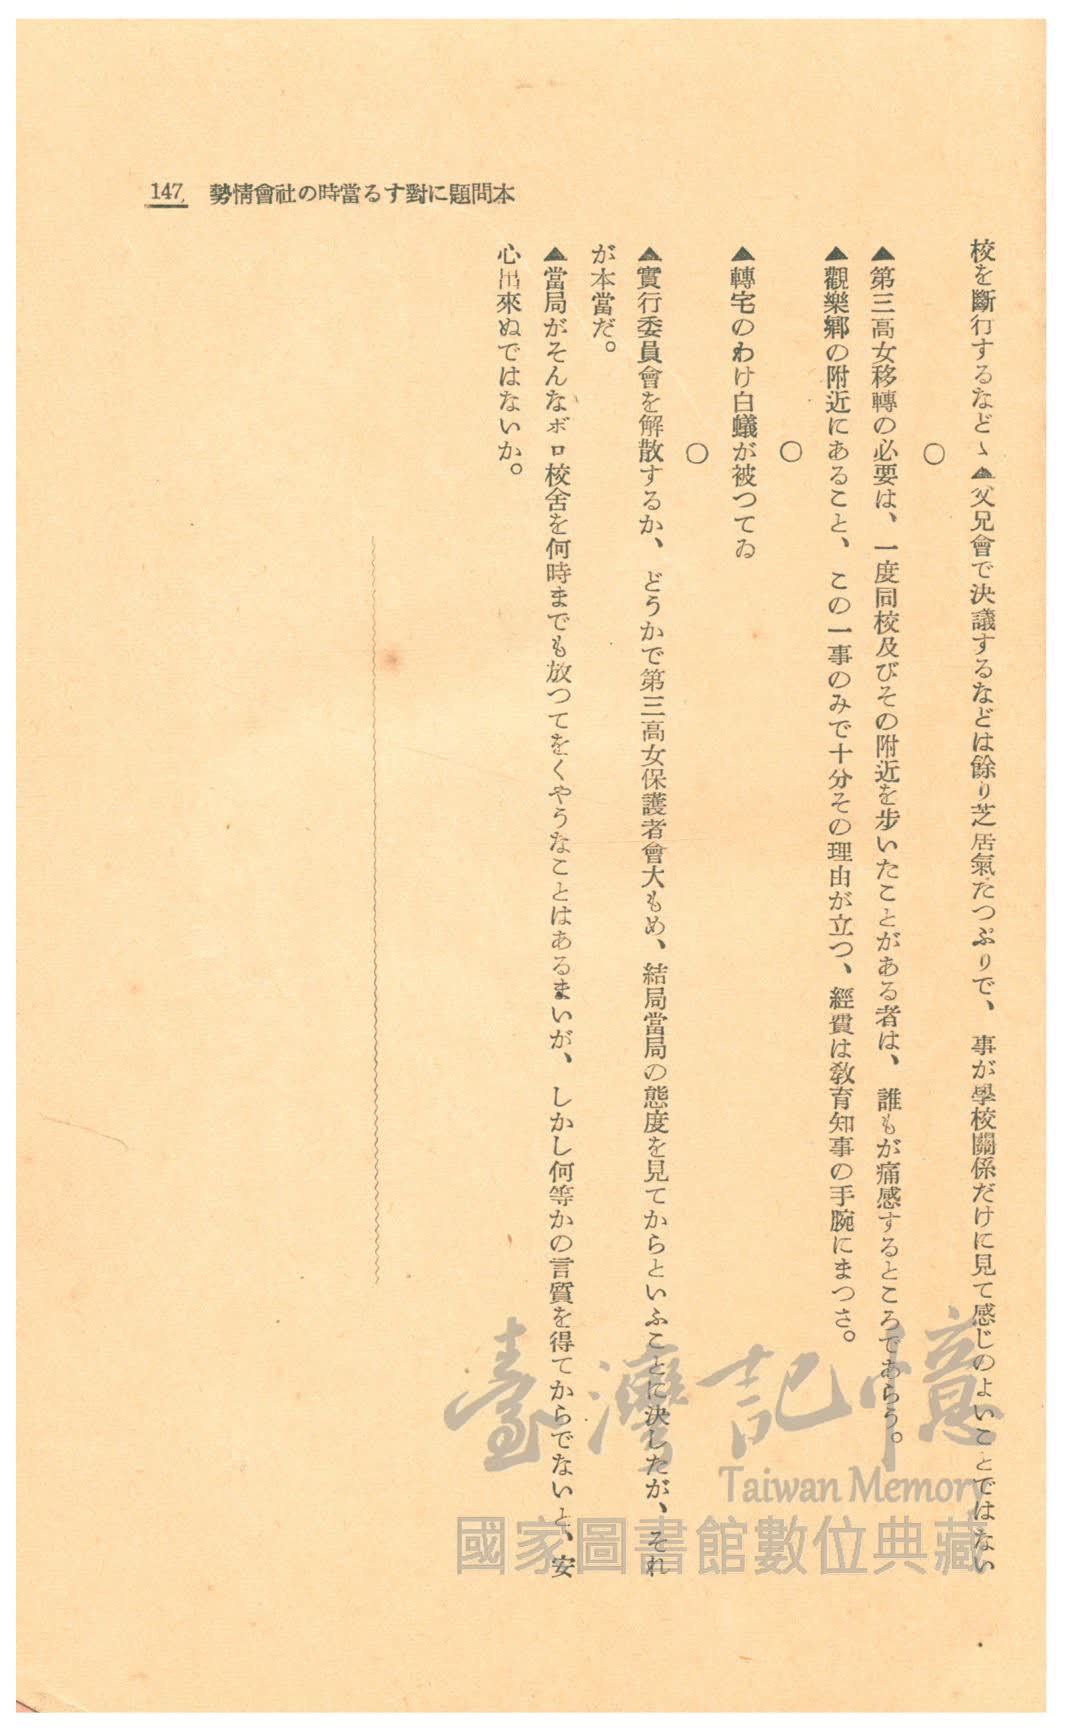 147 勢情會社の時當るす對に題問本
校を斷行するなどゝ▲父兄會で決議するなどは餘り芝居氣たつぷりで、事が學校關係だけに見て感じのよいことではない
○
▲第三高女移轉の必要は、一度同校及びその附近を步いたことがある者は、誰もが痛感するところであらう。
▲觀樂鄕の附近にあること、この一事のみで十分その理由が立つ、經費は敎育知事の手腕にまつさ。
○
▲轉宅のわけ白蟻が被つてゐ
○
▲實行委員會を解散するか、どうかで第三高女保護者會大もめ、結局當局の態度を見てからといふことに決したが、それ
が本當だ。
▲當局がそんなボロ校舍を何時までも放つてをくやうなことはあるまいが、しかし何等かの言質を得てからでないと、安
心出來ぬではないか。
臺灣記憶
Taiwan Memory
國家圖書館數位典藏